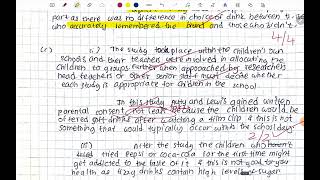 part as there was no difference in choices of drink between t
who accurately remembered the brand and those who didn't
4/4
(c) i.) The study took place within the children's own
schools and their teachers were involved in allocating the
children to groups further when approached by researchers
head teachers or other senior staff must decide whether
each study is appropriate for children in the school
In this study Auty and Lewis gained written
parental consent, not least because the children would be
offered soft drinks after watching a film clip & this is not
something that would typically occur within the school day.
2/2
ii) After the study the children who
tried Pepsi or coca-cola for the first time might
get addicted to the taste of it & this is not good for you
health as fizzy drinks contain high levels sugar